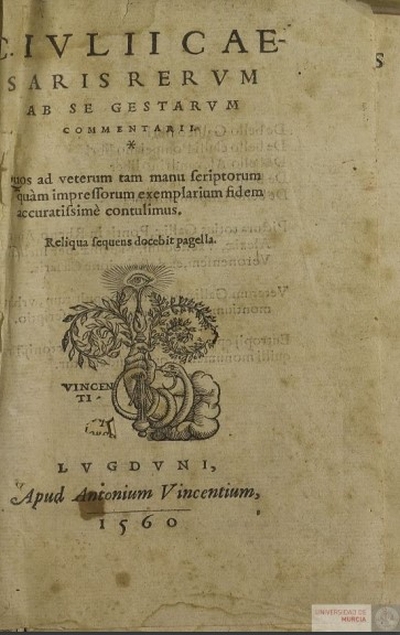 C. IVLII CAE-
SARIS RERVM
AB SE GESTARVM
COMMENTARII.
*
quos ad veterum tam manu ſcriptorum
quàm impreſſorum exemplarium fidem
accuratiſsimè contulimus.
Reliqua ſequens docebit pagella.
VINCEN
TI.
LVGDVNI,
Apud Antonium Vincentium,
1560
S
UNIVERSIDAD DE
MURCIA